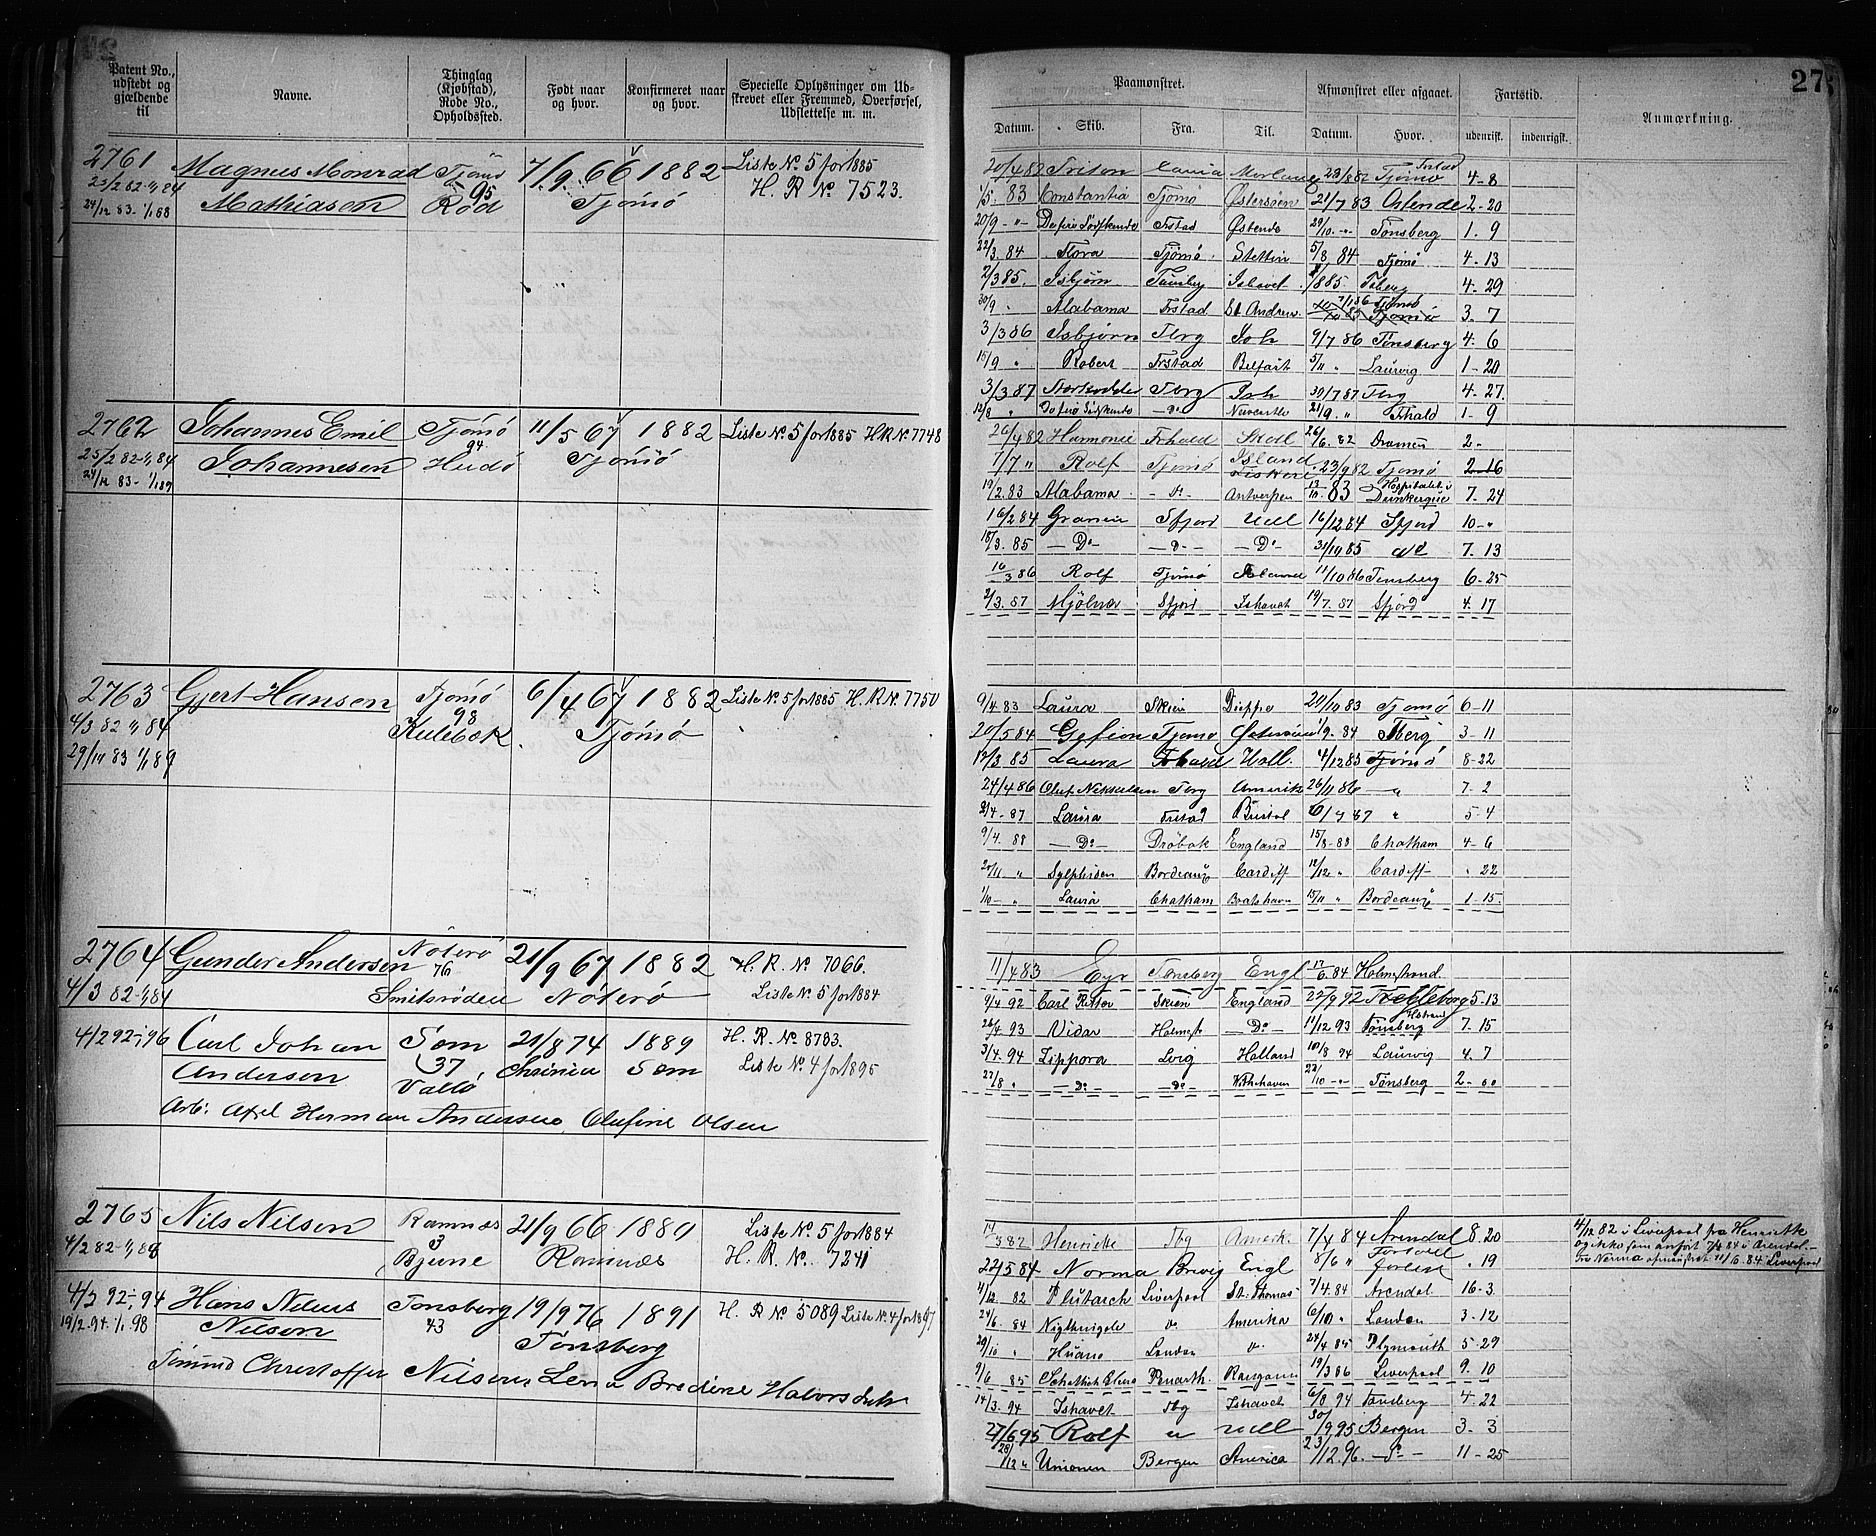 Patent No., udstedt og gjældende til
Navne.
Thinglag (Kjøbstad), Rode No., Opholdssted.
Født naar og hvor.
Konfirmeret naar og hvor.
Specielle Oplysninger om Udskrevet eller Fremmed, Overførsel, Udslettelse m. m.
2761 Magnus Monrad Tjömö 7/9 66 1882 Liste No 5 for 1885
23/2 82 - 1/1 84 Mathiasen 95 Röd Tjömö H. R. No 7523.
24/12 83 - 1/1 88
2762 Johannes Emil Tjömö 11/5 67 1882 Liste No 5 for 1885 H.R.No 7748
25/2 82 - 1/1 84 Johannesen 94 Hudö Tjömö
2763 Gjert Hansen Tjömö 6/4 67 1882 Liste No 5 for 1885 H.R.No 7750
4/3 82 1/1 84 98 Kulebæk Tjömö
29/10 83 1/1 89
2764 Gunder Andersen Nöterö 21/9 67 1882 H. R. No 7066.
4/3 82 - 1/1 84 76 Smitsröden Nöterö Liste No 5 for 1884
4/2 92 - 96 Carl Johan Sem 21/8 74 1889 H. R. No 8783.
Andersen 37 Vallö Sem Liste No 4 for 1895
Arb: Axel Herman Andersen, Olufine Olsen
2765 Nils Nilsen Ramnæs 21/9 66 1880 Liste No 5 for 1884
4/2 82 - Bjune Ramnæs H. R. No. 7241
4/2 92 - 94 Hans Nilius Tönsberg 19/9 76 1891 H. R No 5089 Liste No 4 for 1897
19/2 94 - 1/1 98 Nilsen 43 Tönsberg
Christoffer Nilsen Lena Bredine Halvorsdatr
27
Paamønstret.
Afmønstret eller afgaaet.
Fartstid.
Anmærkning.
Datum. Skib. Fra. Til. Datum. Hvor. udenrikst. indenrigst.
20/4 82 Triton 4-8
1/5. 83 Constantia Tjömö Østersöen 21/7 83 Ostende 2-20
20/9 - " De fire Södskende Frstad Ostende 29/10 - " Tönsberg 1. 9
22/3. 84 Flora Tjömö. Stettin 5/8 84 Tjömö 4. 13
2/3 85. Isbjörn Tönsberg Ishavet Tsberg 4. 29
30/9 " Alabama Frstad St. Andrew 7/1 86 Tjömö 3. 7
3/3 86 Isbjörn Tbrg Ish 9/7 86 Tönsberg 4. 6
15/9 " Robert Frstad Belfast 5/11 " Laurvig 1-20
3/3 87 Tbrg Ish 30/7 87 Tbrg 4-27
12/8 " De fire Södskende - Do Newcastle 21/9. " Frhald 1-9
26/4 82 Harmonie Frhald Skotl 26/6. 82 Dramen 2-
7/7 " Rolf Tjömö Island 23/9 82 Tjömö 2-16
19/2. 83 Alabama. - Do Antwerpen 13/10. 83 Hospitalet i Dunkerque 7. 24
16/2 84 Sfjord Udl 16/12 84 Sfjord 10-"
18/3. 85 - Do - - Do - - Do - 31/10 85 7. 13
16/3 86 Rolf Tjömö 11/10 86 Tönsberg 6-25
2/3. 87 Mjölner Sfjord Ishavet 19/7. 87 Sfjord 4. 17
9/4 83 Laura Skien Dieppe 20/10 83 Tjömö 6-11
20/5 84 Gefion Tjömö Östersöen 1/9. 84 Tberg 3-11
12/3 85 Laura Frhald Holl. 4/12 85 Tjömö 8-22
24/4 86 Oluf Nickelsen Tbrg Amerik 26/11 86 - " 7. 2
2/4 - 87 Laura Frstad Bristol " 5-4
9/4. 88 - Do Dröbak England 15/8 - 88 Chatham 4-6
20/11 " Sylphiden Bordeaux Cardiff 12/12 " Cardiff - " 22
1/10 - " Laura Chatham 15/11 " Bordeaux 1-15.
11/4 83 Eyr Tönsberg Engl 17/6. 84 Holmestrand.
9/4 92 Carl Ritter Skien England 22/9 92 Trelleborg 5-13
26/4 93 Vidar Holmest - Do - 11/12 93 Tönsberg 7. 15
3/4. 94 Zippora Lvig Holland 10/8 94 Laurvig 4. 7
27/8 " - Do - - Do - 23/10 - " Tønsberg 2-00
14/3 82 Henriette Tbg Amerk. 7/4 84 Arendal 8. 20
22/5 84 Norma Brevig Engl 8/6 " " 19
11/12 82 Plutarch Liverpool St. Thomas 7/4. 84 Arendal 16-3
24/6. 84 Nigthingale Do Amerika 6/10 " London 3-12
29/10 " Huano London Do 24/4 85 Plymouth 5-29
9/6 85 Penarth Rangoon 19/3 86 Liverpool 9. 10
14/3. 94 Ishavet Tbg Ishavet 6/8 94 Tønsberg 4-22
27/6 95 Rolf " Udl 30/9 95 Bergen 3-3
28/12 " Unionen Bergen America 23/12. 96 - Do - 11-25
4/12 82 i Liverpool fra Henriette
og ikke som anfört 7/4 84 i Arendal. -
Fra Norma afmønstret 11/6. 84 Liverpool